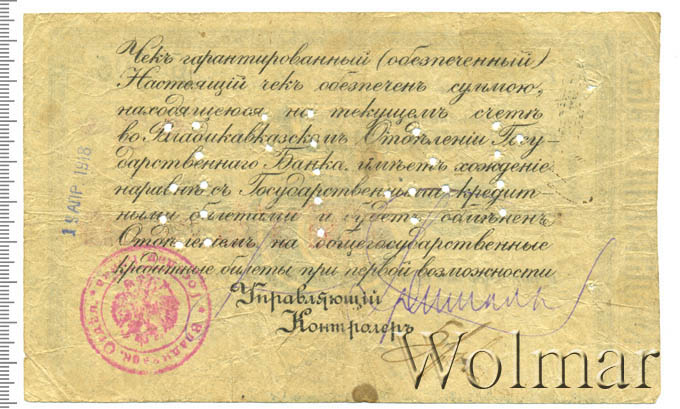 Чекъ гарантированный (обезпеченный)
Настоящій чекъ обезпеченъ суммою,
находящеюся на текущемъ счетѣ
во Владикавказскомъ Отдѣленіи Госу-
дарственнаго Банка, имѣетъ хожденіе
наравнѣ съ Государственными кредит
ными билетами и будетъ обмѣненъ
Отдѣленіемъ на общегосударственные
кредитные билеты при первой возможности
Управляющій
Контролеръ
АПР 1918
Wolmar